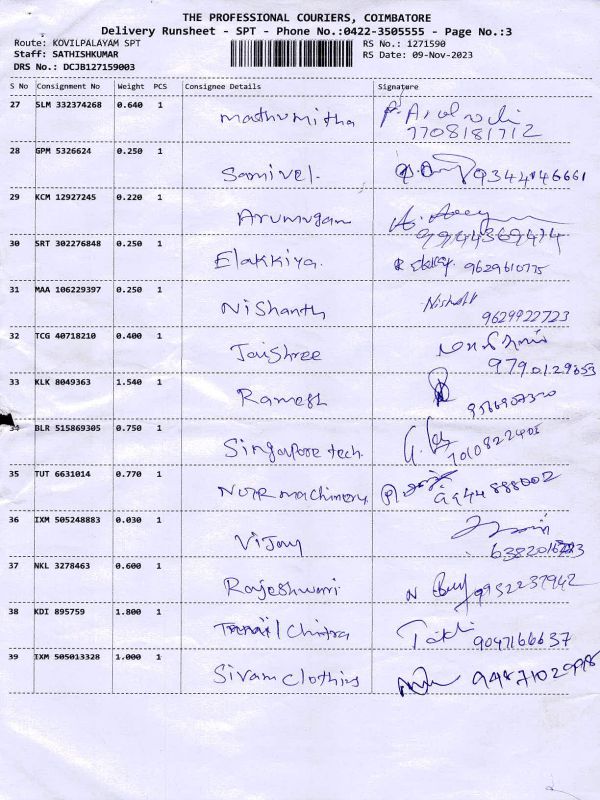 THE PROFESSIONAL COURIERS, COIMBATORE
Delivery Runsheet - SPT - Phone No.:0422-3505555 - Page No.:3
Route: KOVILPALAYAM SPT RS No.: 1271590
Staff: SATHISHKUMAR RS Date: 09-Nov-2023
DRS No.: DCJB127159003
S No Consignment No Weight PCS Consignee Details Signature
27 SLM 332374268 0.640 1
Madhumitha
7708181712
28 GPM 5326624 0.250 1
Samivel.
29 KCM 12927245 0.220 1
Arumugam
30 SRT 302276848 0.250 1
Elakkiya. 9629610775
31 MAA 106229397 0.250 1
Nishanth
9629922723
32 TCG 40718210 0.400 1
Jaishree
33 KLK 8049363 1.540 1
Ramesh
34 BLR 515869305 0.750 1
Singapore tech. 7010822405
35 TUT 6631014 0.770 1
machinery 9944888002
36 IXM 505248883 0.030 1
Vijay
37 NKL 3278463 0.600 1
Rajeshwari 9952237942
38 KDI 895759 1.800 1
Chitra 9047166637
39 IXM 505013328 1.000 1
Sivam Clothing